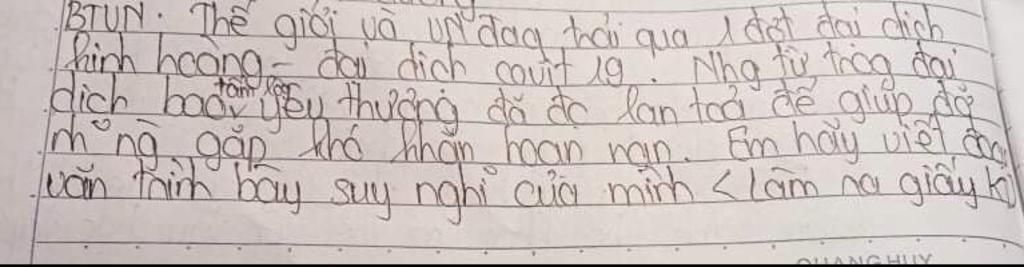 BTVN: Thế giới và VN đag trải qua 1 đợt đại dịch
kinh hoàng - đại dịch covit 19. Nhg từ trog đại
dịch bao tấm lòg yêu thương đã đc lan toả để giúp đỡ
mng gặp khó khăn hoạn nạn. Em hãy viết đoạn
văn trình bày suy nghĩ của mình < làm ra giấy k
QUANG HUY